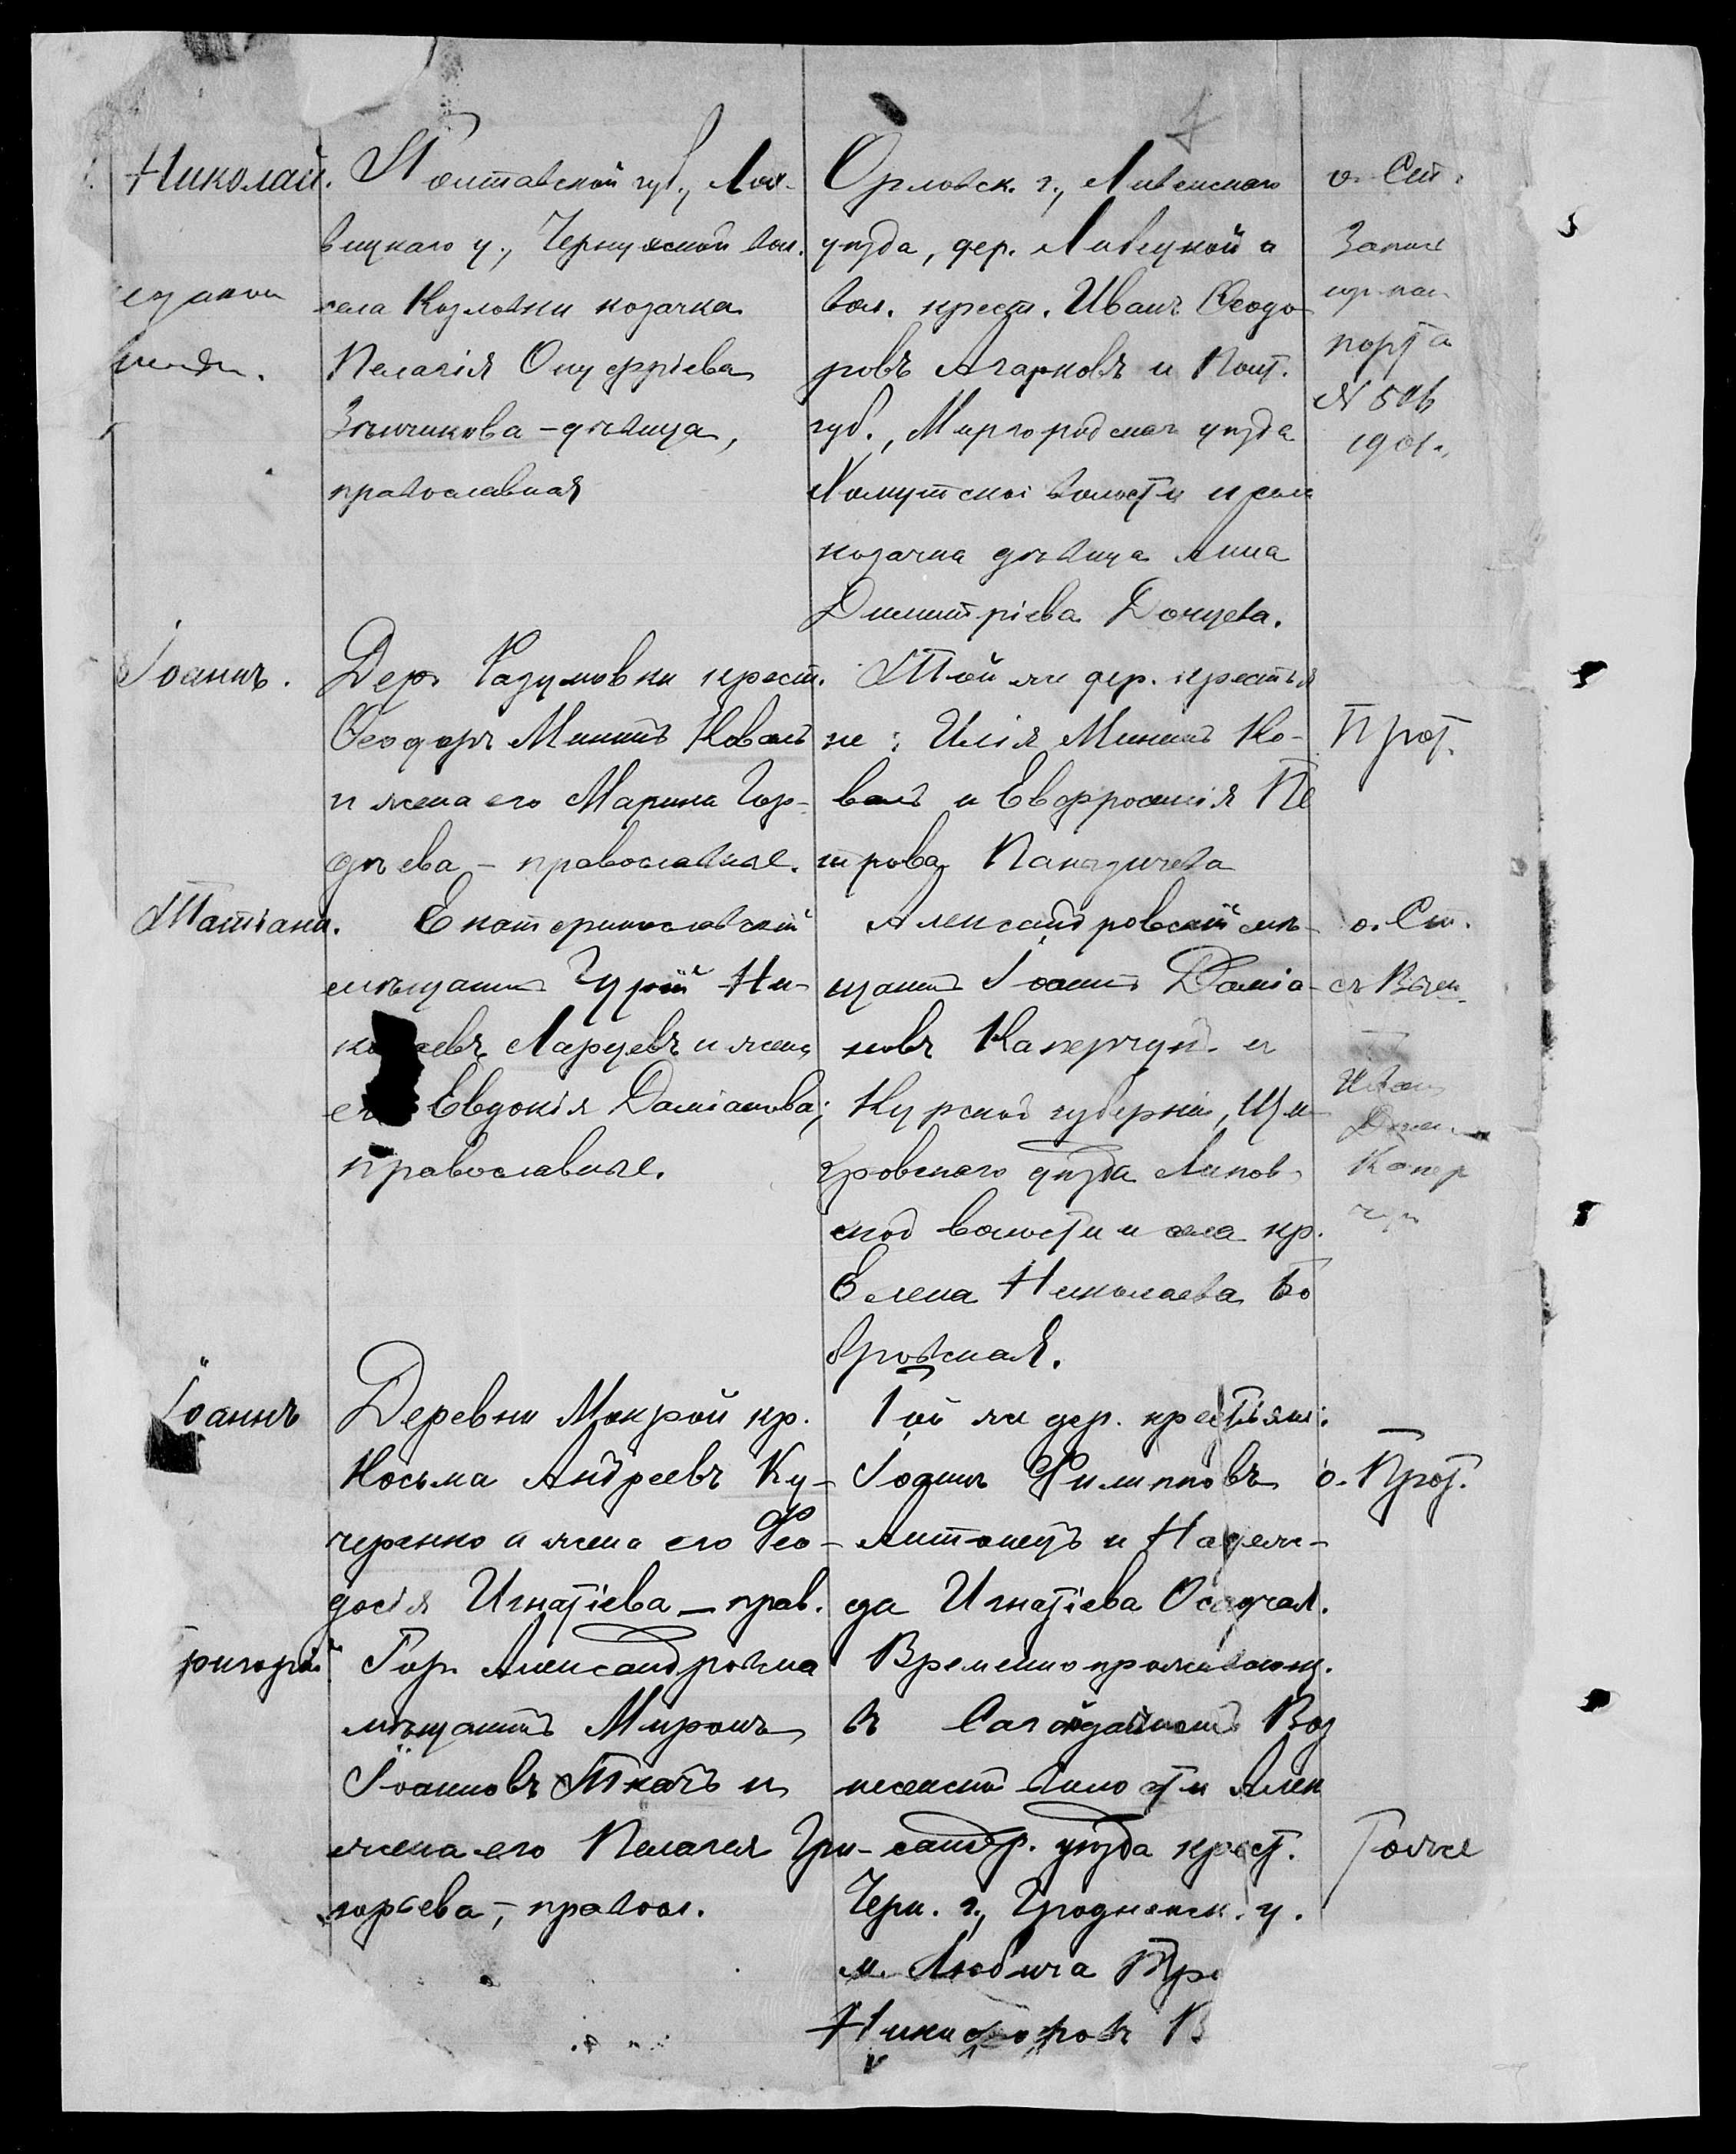 Николай.
Полтавской губ., Лох-
вицкаго у., Чернуской вол.
села Козловки козачка
Пелагія Онуфріева
Зѣнчикова – дѣвица,
православная
Орловск. г., Ливенскаго
уѣзда, дер. Ливецкой и
вол. крест. Иванъ Ѳеодо
ровъ Агарковъ и Полт.
губ., Миргородскаго уѣзда
Хомутской волости и села
козачка дѣвица Анна
Димитріева Донцева.
о. Ст.
Запис
порта
№ 506
1901 г.
Іоаннъ.
Дер. Разумовки крест.
Ѳеодоръ Мининъ Коваль
и жена его Марина Гор-
дѣева – православные.
Той же дер. крестья
не: Илія Мининъ Ко-
валь и Евфросинія Пе
трова
Прот.
Татіана.
Екатеринославскій
мѣщанинъ Гурій Ни-
ко аевъ Ларцевъ и жена
ег Евдокія Даміанова;
православные.
Александровскій мѣ-
щанинъ Іоаннъ Даміа-
новъ Каперчук и
Курской губерніи, Щи-
гровскаго уѣзда Липов-
ской волости и села кр.
Елена Николаева Бо
бровская.
о. Ст.
Иван
Капер
Іоаннъ
Деревни Мокрой кр.
Косьма Андреевъ Ку-
черенко и жена его Ѳео-
досія Игнатіева – прав.
Той же дер. крестьяне:
Іоаннъ Филипповъ
Антонецъ и Надеж-
да Игнатіева Осадчая.
о. Прот.
Григорій
Гор. Александровска
мѣщанинъ Миронъ
Іоанновъ Ткачъ и
жена его Пелагея Гри-
горьева, – правосл.
Временно проживающ.
въ Сагайдачномъ Воз
несенской волости Алек
сандр. уѣзда крест.
Черн. г., Гродненск. у.
м. Любича
Никифоровъ В
Тоже